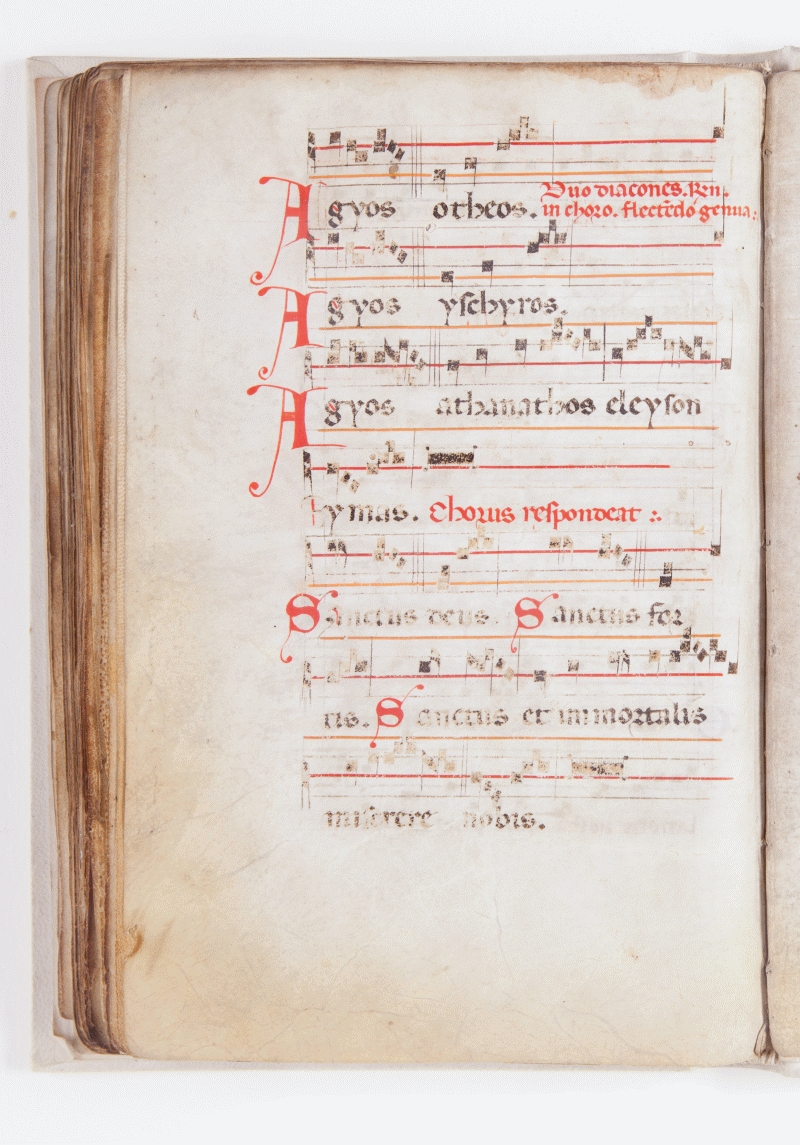 Agyos otheos. Duo diacones. Ren.
in choro. flectēdo genua:
Agyos yschyros.
Agyos athanathos eleyson
ymas. Chorus respondeat :.
Sanctus deus. Sanctus for
tis. Sanctus et immortalis
miserere nobis.